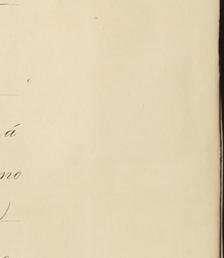 á
no
)